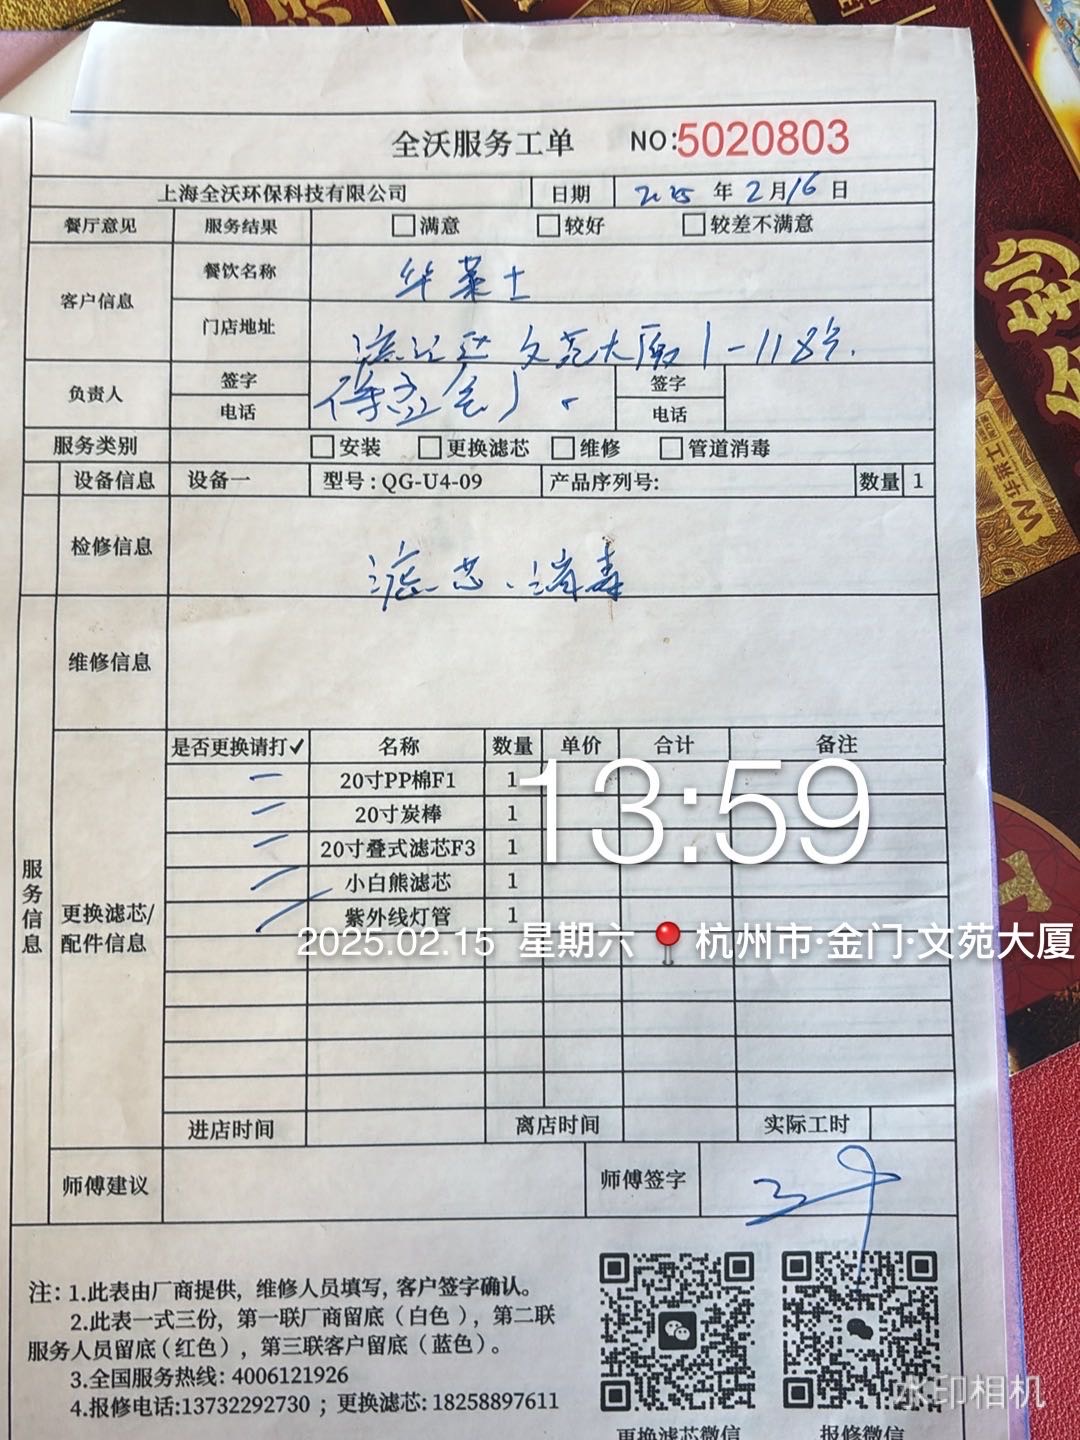 全沃服务工单 NO:5020803
上海全沃环保科技有限公司 日期 2025 年 2 月 16 日
餐厅意见 服务结果 满意 较好 较差不满意
客户信息 餐饮名称 华莱士
门店地址 滨江区 文苑大厦 1-118号.
负责人 签字 签字
电话 电话
服务类别 安装 更换滤芯 维修 管道消毒
设备信息 设备一 型号:QG-U4-09 产品序列号: 数量 1
检修信息 滤芯、消毒
维修信息
服务信息
更换滤芯/
配件信息
是否更换请打✓ 名称 数量 单价 合计 备注
20寸PP棉F1 1
20寸炭棒 1
20寸叠式滤芯F3 1
小白熊滤芯 1
紫外线灯管 1
13:59
2025.02.15 星期六 杭州市·金门·文苑大厦
进店时间 离店时间 实际工时
师傅建议 师傅签字
注：1.此表由厂商提供，维修人员填写，客户签字确认。
2.此表一式三份，第一联厂商留底（白色），第二联
服务人员留底（红色），第三联客户留底（蓝色）。
3.全国服务热线：4006121926
4.报修电话:13732292730 ；更换滤芯：18258897611
更换滤芯微信 报修微信
水印相机
华莱士